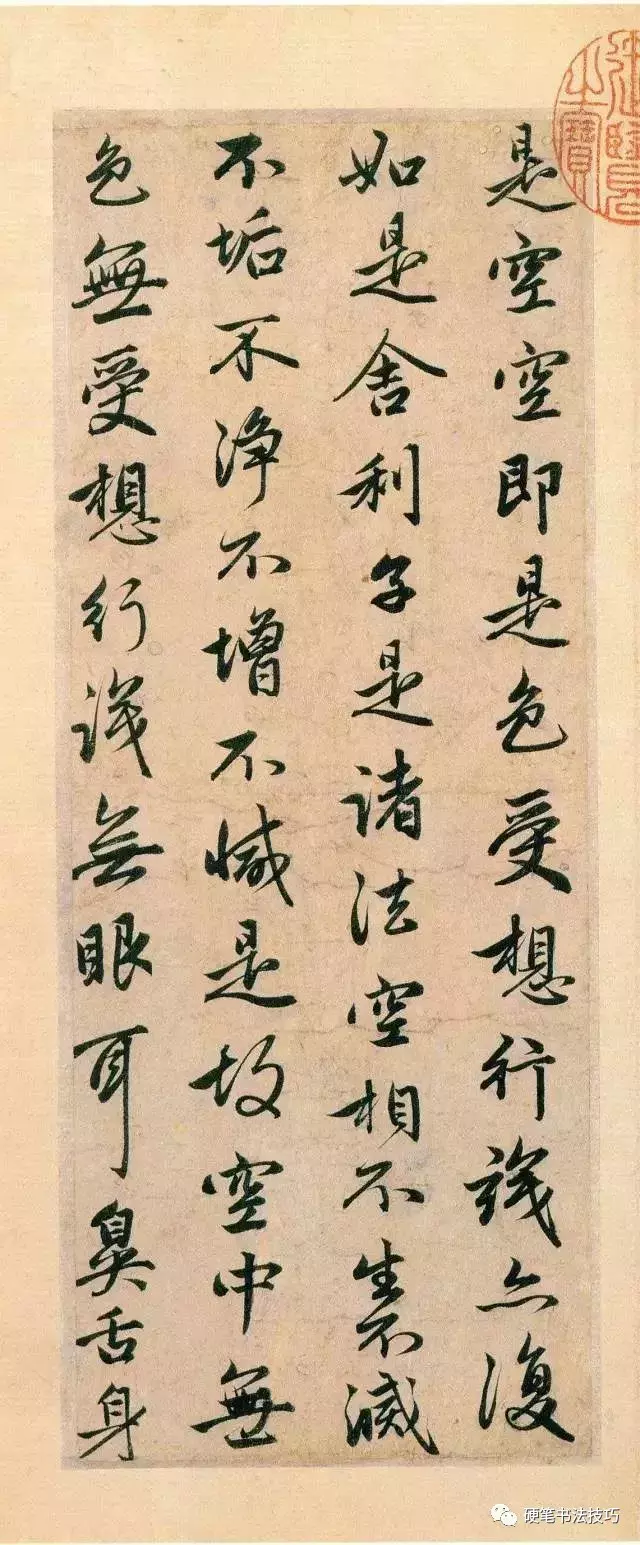 是空空即是色受想行識亦復
如是舍利子是諸法空相不生不滅
不垢不净不增不減是故空中無
色無受想行識無眼耳鼻舌身
硬笔书法技巧